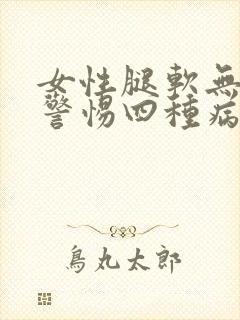 女性腿軟無
警惕四種病
鳥丸太郎